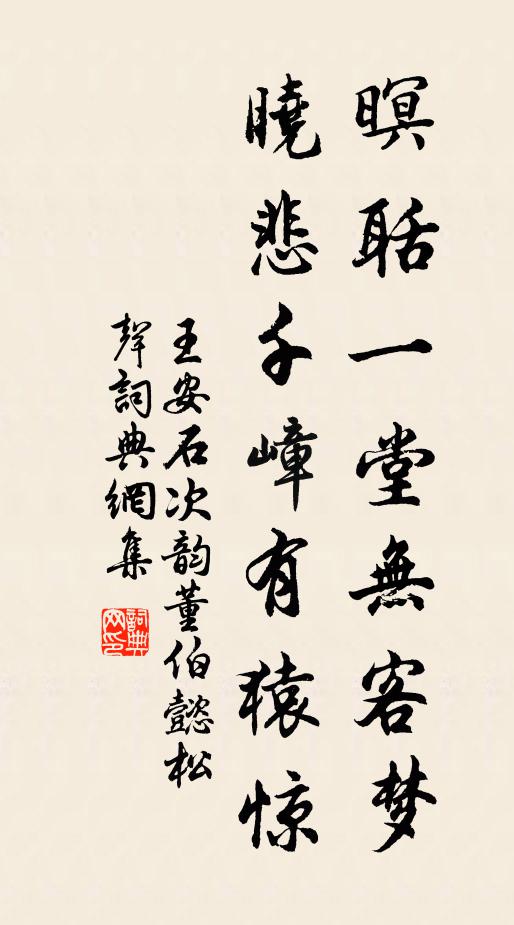 暝聒一堂無客梦
曉悲千嶂有猿惊
王安石次韵董伯懿松
聲詞典網集
詞典网印